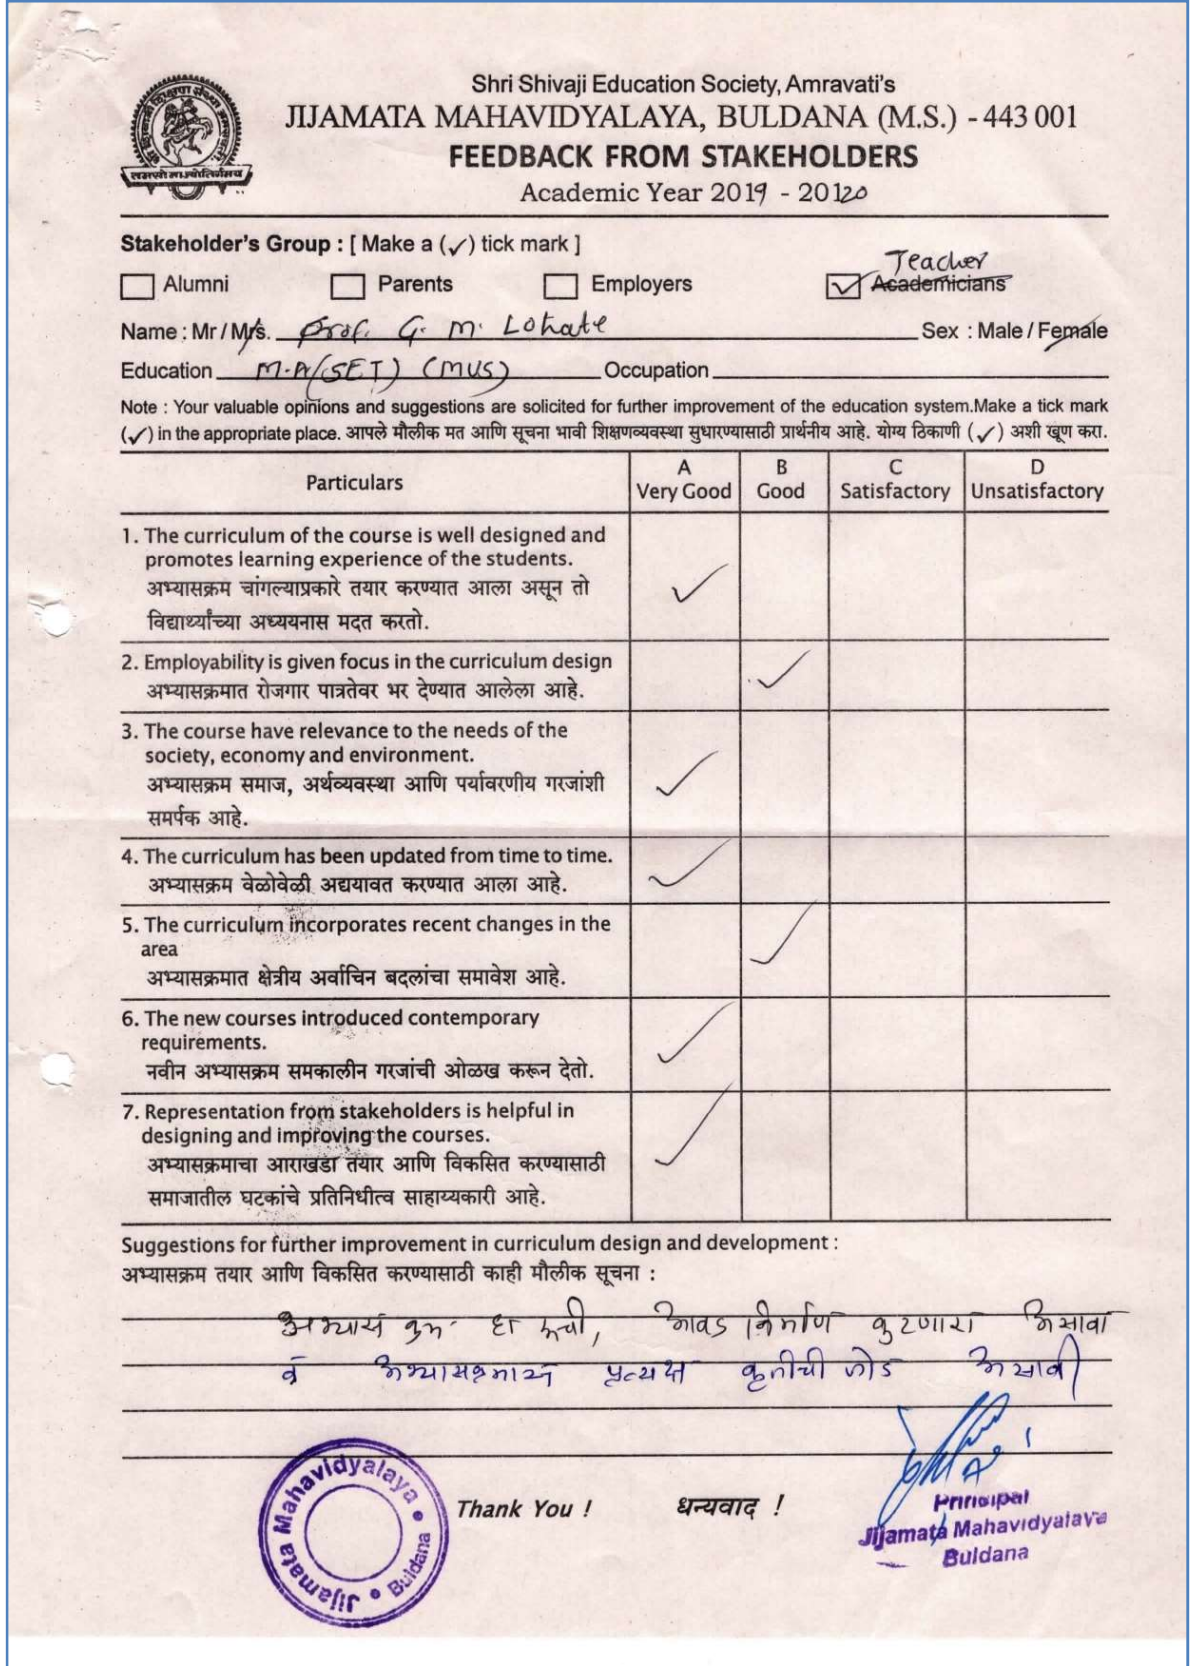 Shri Shivaji Education Society, Amravati's
JIJAMATA MAHAVIDYALAYA, BULDANA (M.S.) - 443 001
FEEDBACK FROM STAKEHOLDERS
Academic Year 2019 - 20120
तमसो मा ज्योतिर्गमय
Stakeholder's Group : [ Make a (✓) tick mark ]
Teacher
Alumni Parents Employers ✓ Academicians
Name : Mr / Mrs. Prof. G. M. Lohate Sex : Male / Female
Education M.A/(SET) (MUS) Occupation
Note : Your valuable opinions and suggestions are solicited for further improvement of the education system.Make a tick mark
(✓) in the appropriate place. आपले मौलीक मत आणि सूचना भावी शिक्षणव्यवस्था सुधारण्यासाठी प्रार्थनीय आहे. योग्य ठिकाणी (✓) अशी खूण करा.
Particulars A Very Good B Good C Satisfactory D Unsatisfactory
1. The curriculum of the course is well designed and
promotes learning experience of the students.
अभ्यासक्रम चांगल्याप्रकारे तयार करण्यात आला असून तो ✓
विद्यार्थ्यांच्या अध्ययनास मदत करतो.
2. Employability is given focus in the curriculum design ✓
अभ्यासक्रमात रोजगार पात्रतेवर भर देण्यात आलेला आहे.
3. The course have relevance to the needs of the
society, economy and environment.
अभ्यासक्रम समाज, अर्थव्यवस्था आणि पर्यावरणीय गरजांशी ✓
समर्पक आहे.
4. The curriculum has been updated from time to time.
अभ्यासक्रम वेळोवेळी अद्ययावत करण्यात आला आहे. ✓
5. The curriculum incorporates recent changes in the
area ✓
अभ्यासक्रमात क्षेत्रीय अर्वाचिन बदलांचा समावेश आहे.
6. The new courses introduced contemporary
requirements. ✓
नवीन अभ्यासक्रम समकालीन गरजांची ओळख करून देतो.
7. Representation from stakeholders is helpful in
designing and improving the courses.
अभ्यासक्रमाचा आराखडा तयार आणि विकसित करण्यासाठी ✓
समाजातील घटकांचे प्रतिनिधीत्व साहाय्यकारी आहे.
Suggestions for further improvement in curriculum design and development :
अभ्यासक्रम तयार आणि विकसित करण्यासाठी काही मौलीक सूचना :
अभ्यास क्रम हा रूची, आवड निर्माण करणारा असावा
व अभ्यासक्रमास प्रत्यक्ष कृतीची जोड असावी
Thank You ! धन्यवाद !
Jijamata Mahavidyalaya Buldana
Principal
Jijamata Mahavidyalaya
Buldana